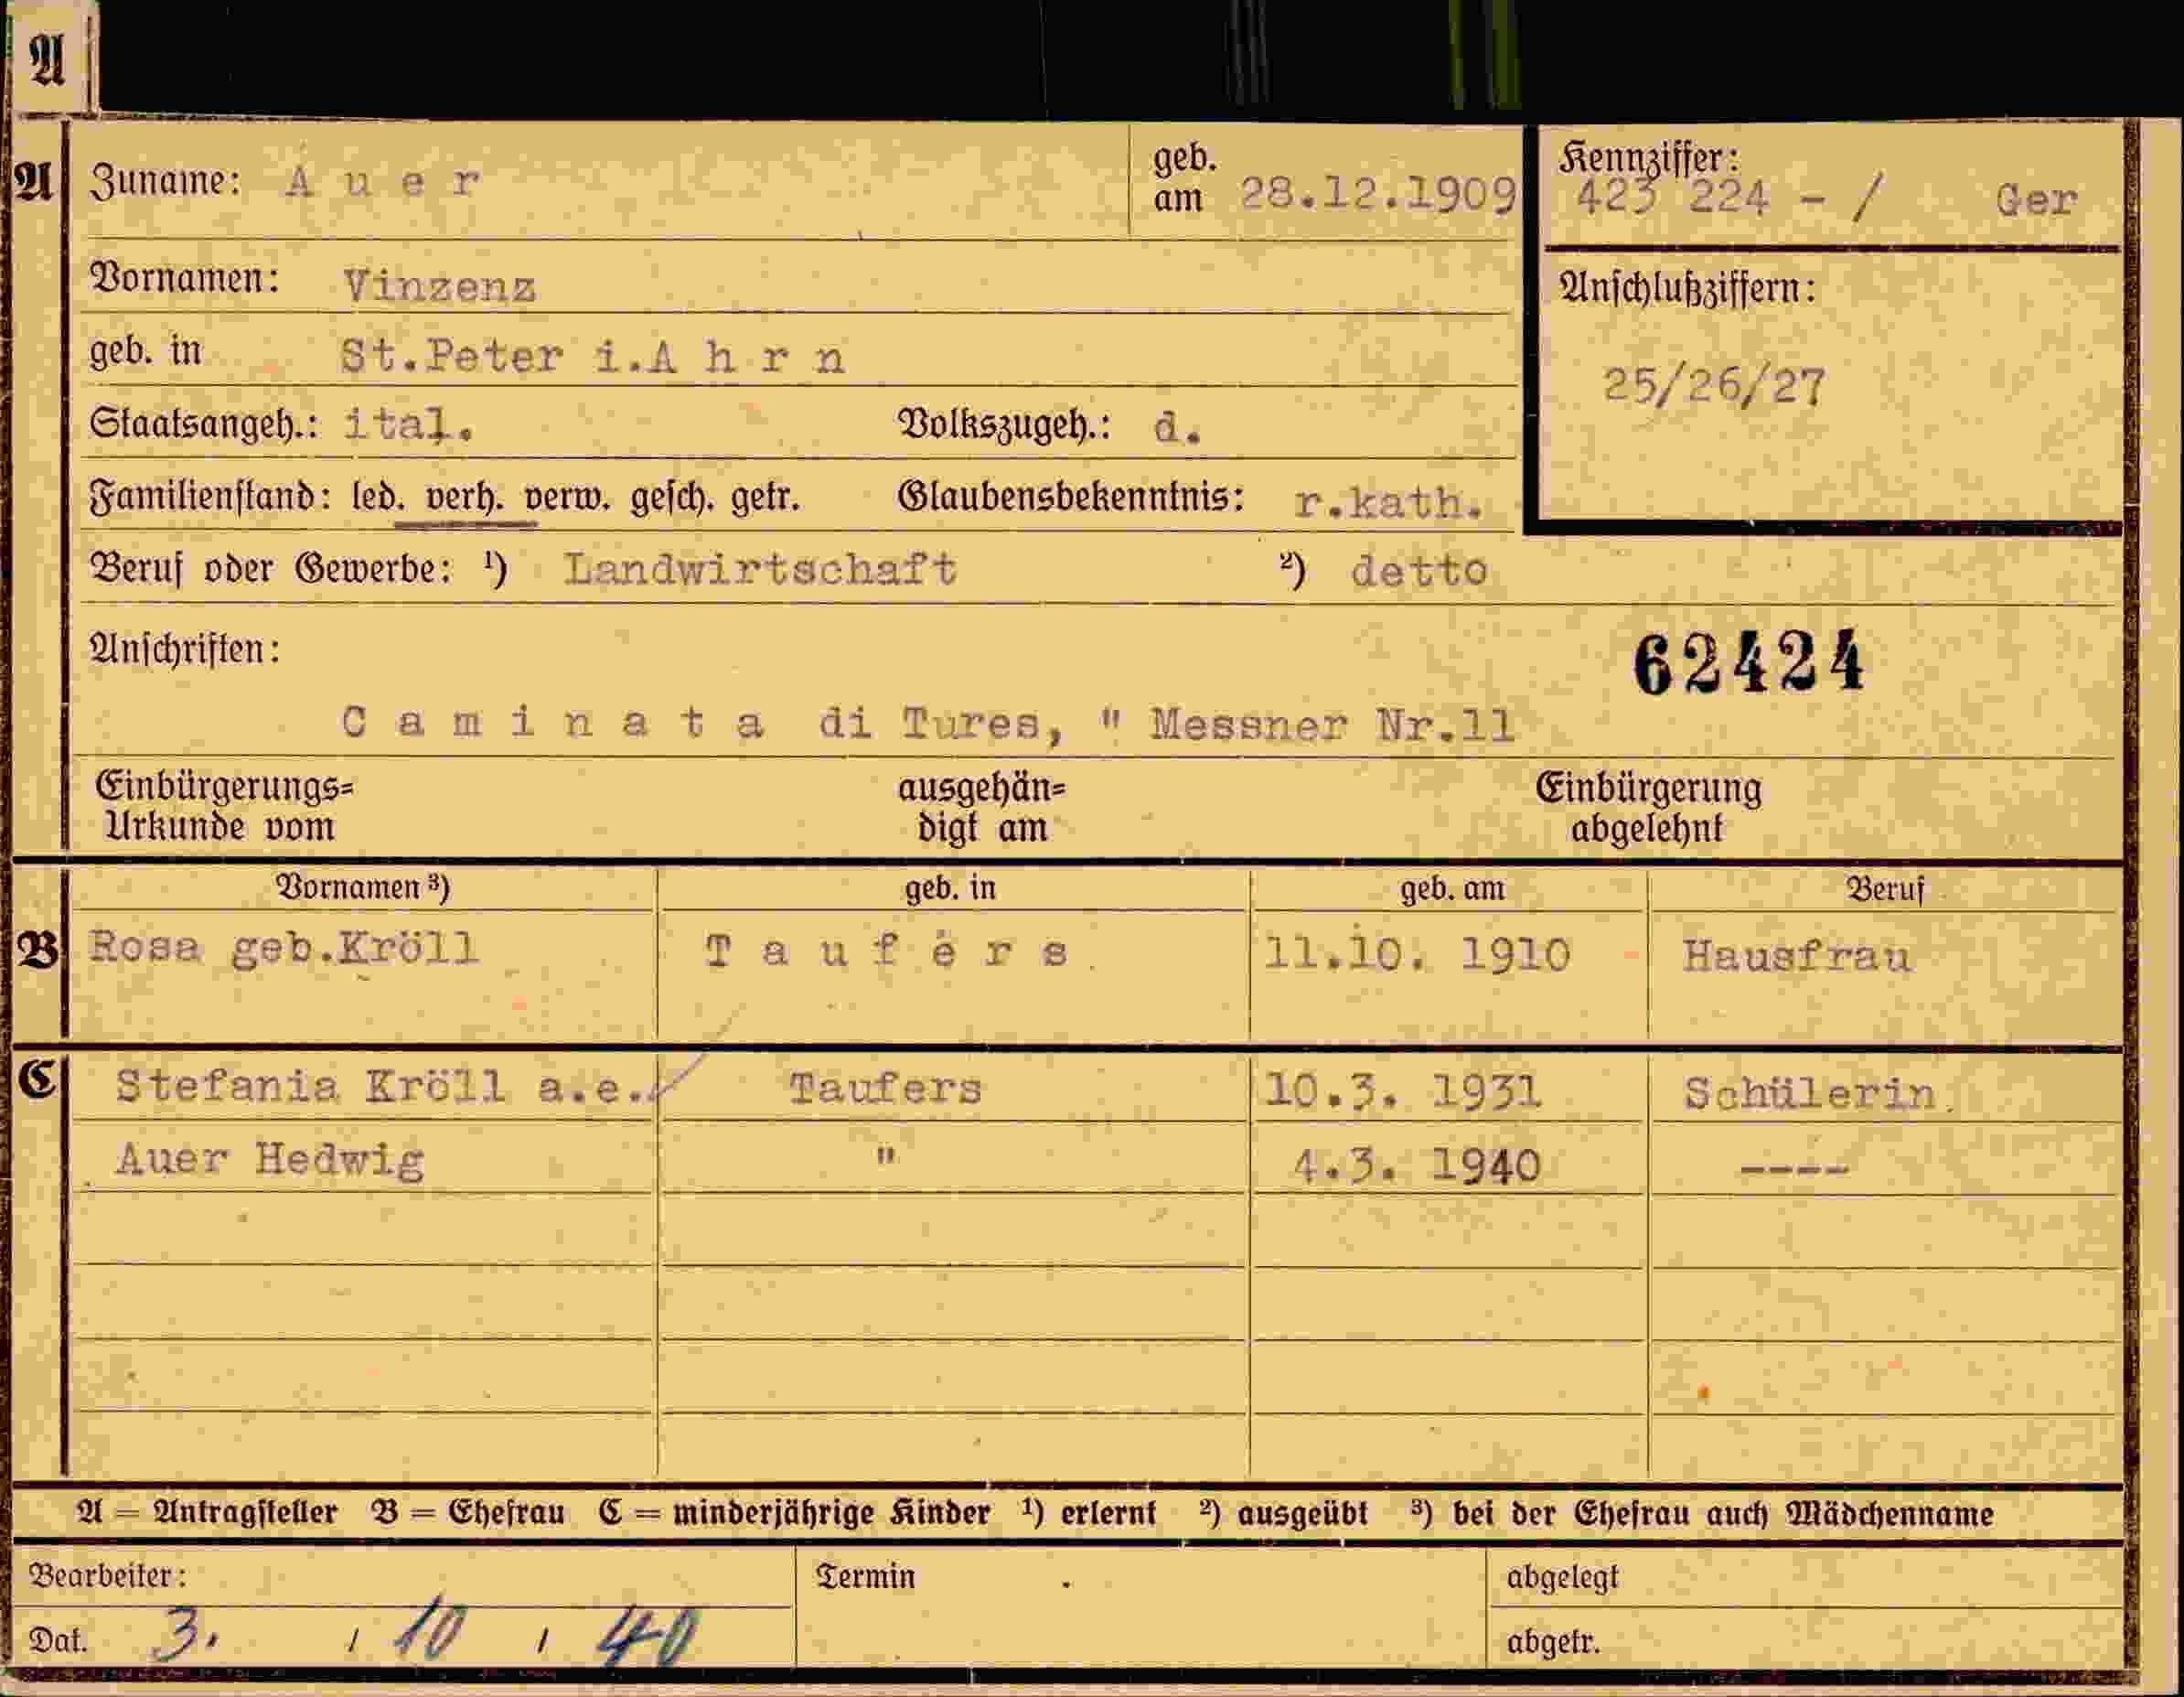 A
A Zuname: A u e r geb. am 28.12.1909 Kennziffer: 423 224 - / Ger
Vornamen: Vinzenz Anschlußziffern:
geb. in St.Peter i.A h r n 25/26/27
Staatsangeh.: ital. Volkszugeh.: d.
Familienstand: led. verh. verw. gesch. getr. Glaubensbekenntnis: r.kath.
Beruf oder Gewerbe: ¹) Landwirtschaft ²) detto
Anschriften: 62424
C a m i n a t a di Tures, " Messner Nr.11
Einbürgerungs= ausgehän= Einbürgerung
Urkunde vom digt am abgelehnt
Vornamen ³) geb. in geb. am Beruf
B Rosa geb.Kröll T a u f e r s 11.10. 1910 Hausfrau
C Stefania Kröll a.e. Taufers 10.3. 1931 Schülerin
Auer Hedwig " 4.3. 1940 ----
A = Antragsteller B = Ehefrau C = minderjährige Kinder ¹) erlernt ²) ausgeübt ³) bei der Ehefrau auch Mädchenname
Bearbeiter: Termin abgelegt
Dat. 3. / 10 / 40 abgetr.